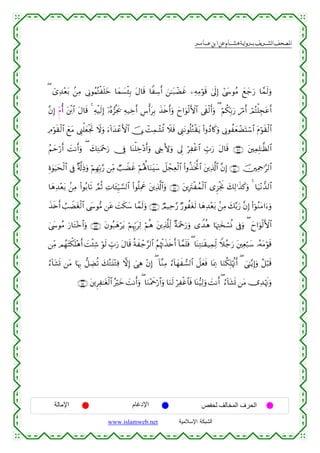 المصحف الشريف برواية هشام عن ابن عامر
وَلَمَّا رَجَعَ مُوسَىٰٓ إِلَىٰ قَوْمِهِۦ غَضْبَٰنَ أَسِفًا قَالَ بِئْسَمَا خَلَفْتُمُونِى مِنۢ بَعْدِىٓ
أَعَجِلْتُمْ أَمْرَ رَبِّكُمْ وَأَلْقَى ٱلْأَلْوَاحَ وَأَخَذَ بِرَأْسِ أَخِيهِ يَجُرُّهُۥٓ إِلَيْهِ قَالَ ٱبْنَ أُمِّ إِنَّ
ٱلْقَوْمَ ٱسْتَضْعَفُونِى وَكَادُوا۟ يَقْتُلُونَنِى فَلَا تُشْمِتْ بِىَ ٱلْأَعْدَآءَ وَلَا تَجْعَلْنِى مَعَ ٱلْقَوْمِ
ٱلظَّٰلِمِينَ قَالَ رَبِّ ٱغْفِرْ لِى وَلِأَخِى وَأَدْخِلْنَا فِى رَحْمَتِكَ وَأَنتَ أَرْحَمُ
ٱلرَّٰحِمِينَ إِنَّ ٱلَّذِينَ ٱتَّخَذُوا۟ ٱلْعِجْلَ سَيَنَالُهُمْ غَضَبٌ مِّن رَّبِّهِمْ وَذِلَّةٌ فِى ٱلْحَيَوٰةِ
ٱلدُّنْيَا وَكَذَٰلِكَ نَجْزِى ٱلْمُفْتَرِينَ وَٱلَّذِينَ عَمِلُوا۟ ٱلسَّيِّـَٔاتِ ثُمَّ تَابُوا۟ مِنۢ بَعْدِهَا
وَءَامَنُوٓا۟ إِنَّ رَبَّكَ مِنۢ بَعْدِهَا لَغَفُورٌ رَّحِيمٌ وَلَمَّا سَكَتَ عَن مُّوسَى ٱلْغَضَبُ أَخَذَ
ٱلْأَلْوَاحَ وَفِى نُسْخَتِهَا هُدًى وَرَحْمَةٌ لِّلَّذِينَ هُمْ لِرَبِّهِمْ يَرْهَبُونَ وَٱخْتَارَ مُوسَىٰ
قَوْمَهُۥ سَبْعِينَ رَجُلًا لِّمِيقَٰتِنَا فَلَمَّآ أَخَذَتْهُمُ ٱلرَّجْفَةُ قَالَ رَبِّ لَوْ شِئْتَ أَهْلَكْتَهُم مِّن
قَبْلُ وَإِيَّٰىَ أَتُهْلِكُنَا بِمَا فَعَلَ ٱلسُّفَهَآءُ مِنَّآ إِنْ هِىَ إِلَّا فِتْنَتُكَ تُضِلُّ بِهَا مَن تَشَآءُ
وَتَهْدِى مَن تَشَآءُ أَنتَ وَلِيُّنَا فَٱغْفِرْ لَنَا وَٱرْحَمْنَا وَأَنتَ خَيْرُ ٱلْغَٰفِرِينَ
الحرف المخالف لحفص الإدغام الإمالة
www.islamweb.net الشبكة الإسلامية